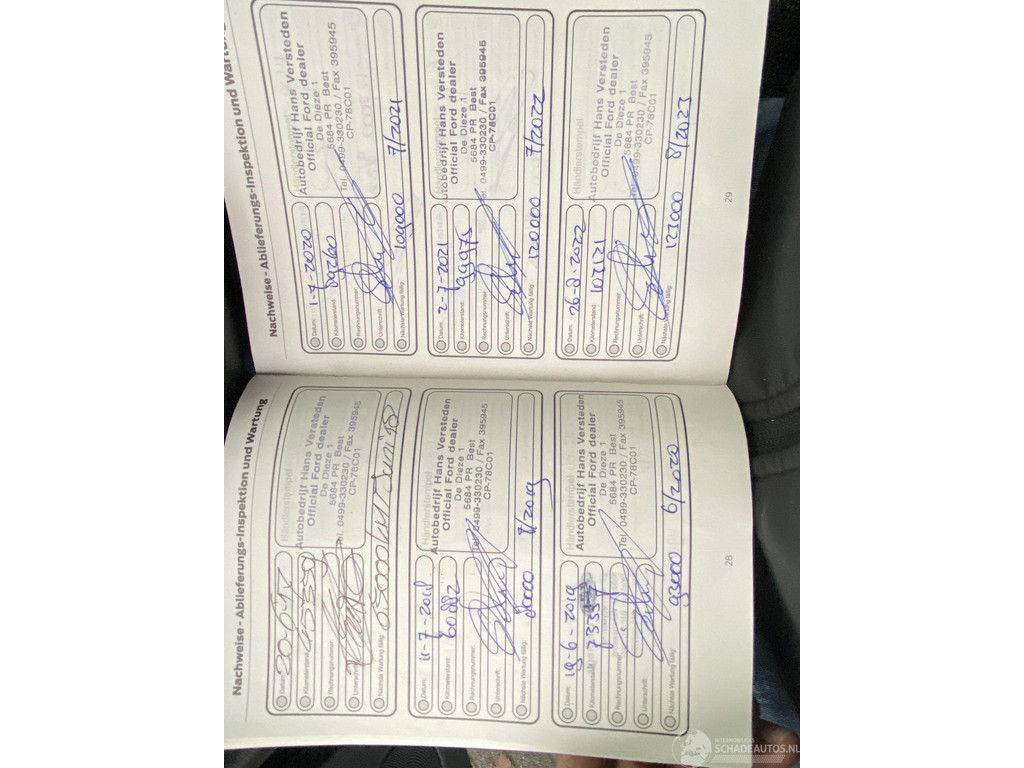 Nachweise - Ablieferungs-Inspektion und Wartung
Händlerstempel
Autobedrijf Hans Versteden
Official Ford dealer
De Dieze 1
5684 PR Best
Tel. 0499-330230 / Fax 395945
CP-78C01
Datum:
Kilometerstand:
Rechnungsnummer:
Unterschrift:
Nächste Wartung fällig:
Händlerstempel
Autobedrijf Hans Versteden
Official Ford dealer
De Dieze 1
5684 PR Best
Tel. 0499-330230 / Fax 395945
CP-78C01
Datum: 11-7-2018
Kilometerstand: 60882
Rechnungsnummer:
Unterschrift:
Nächste Wartung fällig: 80000
Händlerstempel
Autobedrijf Hans Versteden
Official Ford dealer
De Dieze 1
5684 PR Best
Tel. 0499-330230 / Fax 395945
CP-78C01
Datum: 19-6-2019
Kilometerstand:
Rechnungsnummer:
Unterschrift:
Nächste Wartung fällig: 93000 6/2020
28
Nachweise - Ablieferungs-Inspektion und Wartung
Autobedrijf Hans Versteden
Official Ford dealer
De Dieze 1
5684 PR Best
Tel. 0499-330230 / Fax 395945
CP-78C01
Datum: 1-7-2020
Kilometerstand: 89260
Rechnungsnummer:
Unterschrift:
Nächste Wartung fällig: 109000 7/2021
Autobedrijf Hans Versteden
Official Ford dealer
De Dieze 1
5684 PR Best
Tel. 0499-330230 / Fax 395945
CP-78C01
Datum: 2-7-2021
Kilometerstand: 99975
Rechnungsnummer:
Unterschrift:
Nächste Wartung fällig: 120000 7/2022
Händlerstempel
Autobedrijf Hans Versteden
Official Ford dealer
De Dieze 1
5684 PR Best
Tel. 0499-330230 / Fax 395945
CP-78C01
Datum: 26-8-2022
Kilometerstand: 102121
Rechnungsnummer:
Unterschrift:
Nächste Wartung fällig: 122000 8/2023
29
SCHADEAUTOS.NL